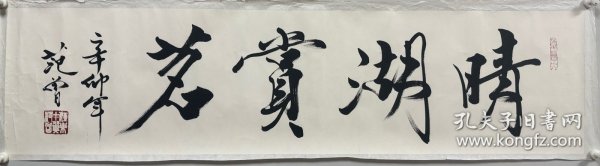 晴湖赏茗
辛卯年
范曾
孔夫子旧书网
www.kongfz.com